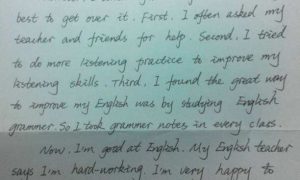 best to get over it. First, I often asked my
teacher and friends for help. Second, I tried
to do more listening practice to improve my
listening skills. Third, I found the great way
to improve my English was by studying English
grammer. So I took grammer notes in every class.
Now, I'm good at English. My English teacher
says I'm hard-working. I'm very happy to